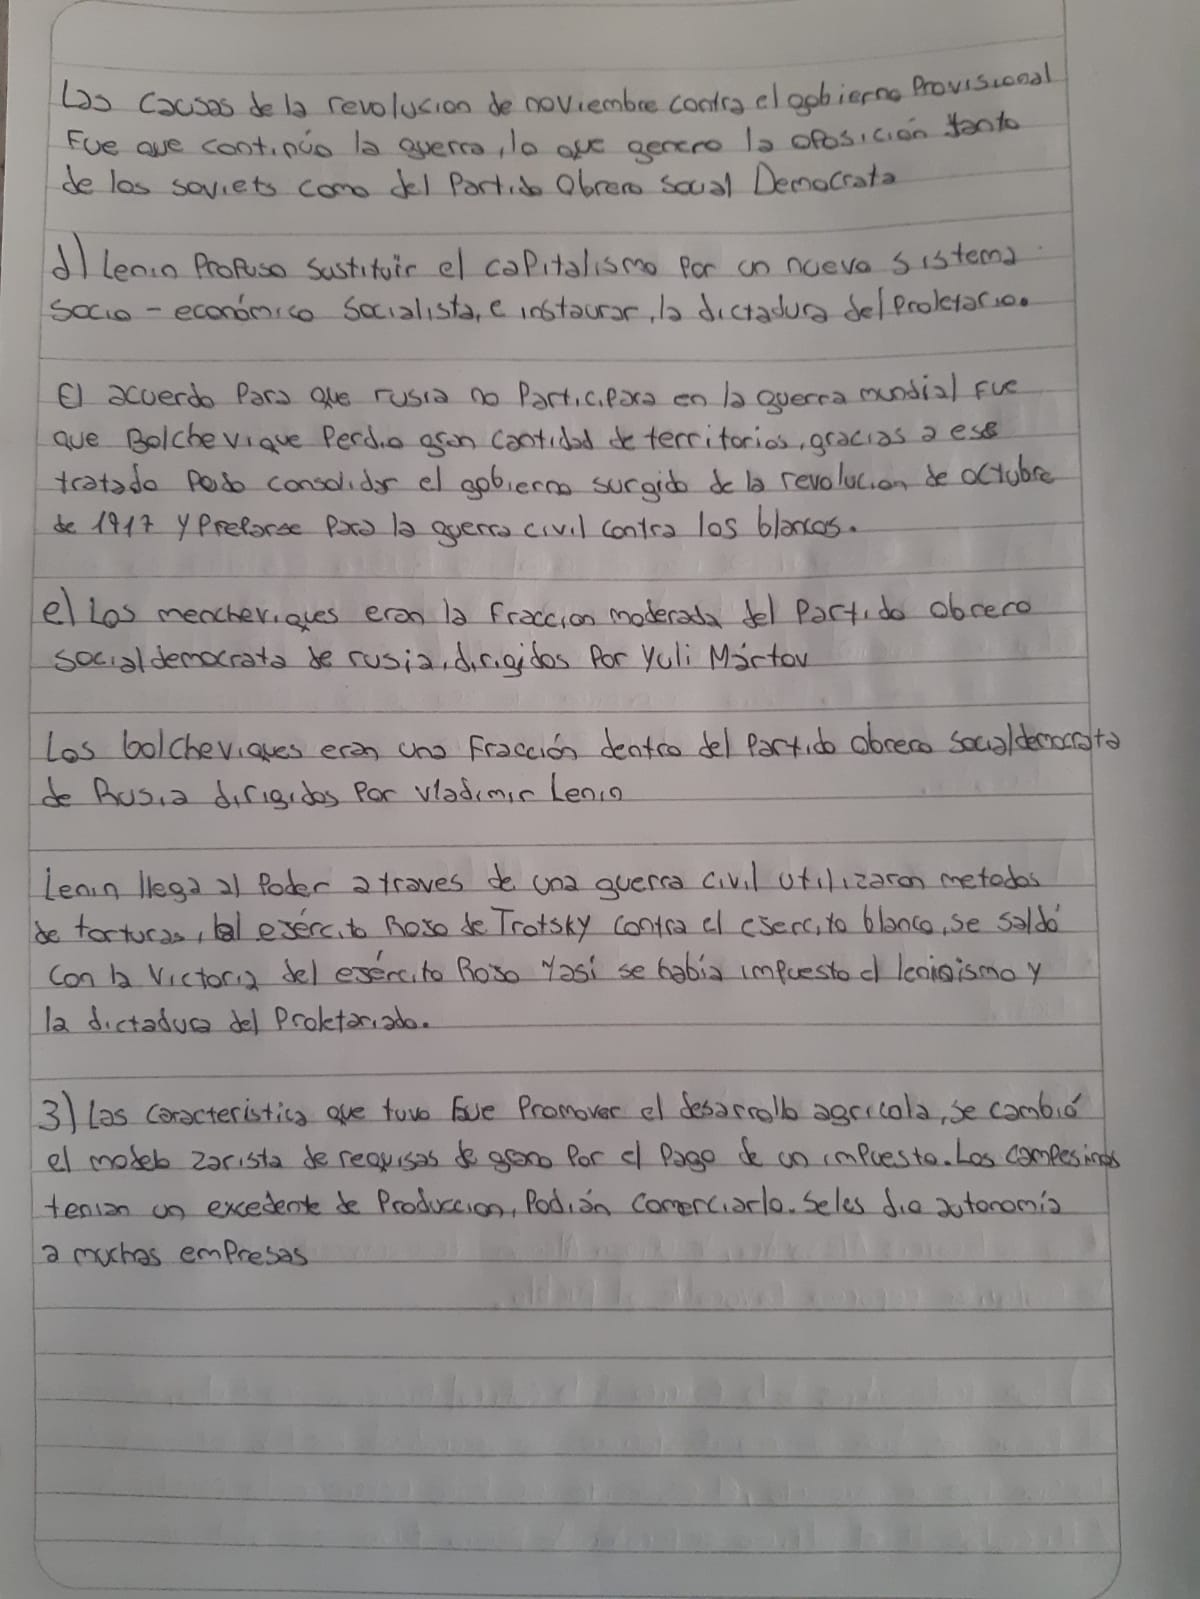 Las causas de la revolucion de noviembre contra el gobierno Provisional
Fue que continúo la guerra, lo que genero la oposición tanto
de los soviets como del Partido Obrero Social Democrata
d) Lenin Propuso sustituir el capitalismo por un nuevo sistema
socio - económico socialista, e instaurar, la dictadura del Proletario.
El acuerdo Para que rusia no Participara en la guerra mundial Fue
que Bolchevique Perdio gran cantidad de territorios, gracias a ese
tratado Pudo consolidar el gobierno surgido de la revolucion de octubre
de 1917 y Preparse Para la guerra civil contra los blancos.
e) Los mencheviques eran la Fraccion moderada del Partido obrero
socialdemocrata de rusia, dirigidos Por Yuli Mártov
Los bolcheviques eran una Fracción dentro del Partido obrero socialdemocrata
de Rusia dirigidos Por Vladimir Lenin
Lenin llega al Poder a traves de una guerra civil utilizaron metodos
de torturas, el ejército Rojo de Trotsky contra el ejercito blanco, se saldó
con la Victoria del ejército Rojo Y así se había impuesto el leninismo y
la dictadura del Proletariado.
3) Las caracteristica que tuvo Fue Promover el desarrollo agricola, se cambió
el modelo zarista de requisas de grano Por el Pago de un impuesto. Los campesinos
tenian un excedente de Produccion, Podían comerciarlo. Se les dio autonomía
a muchas empresas